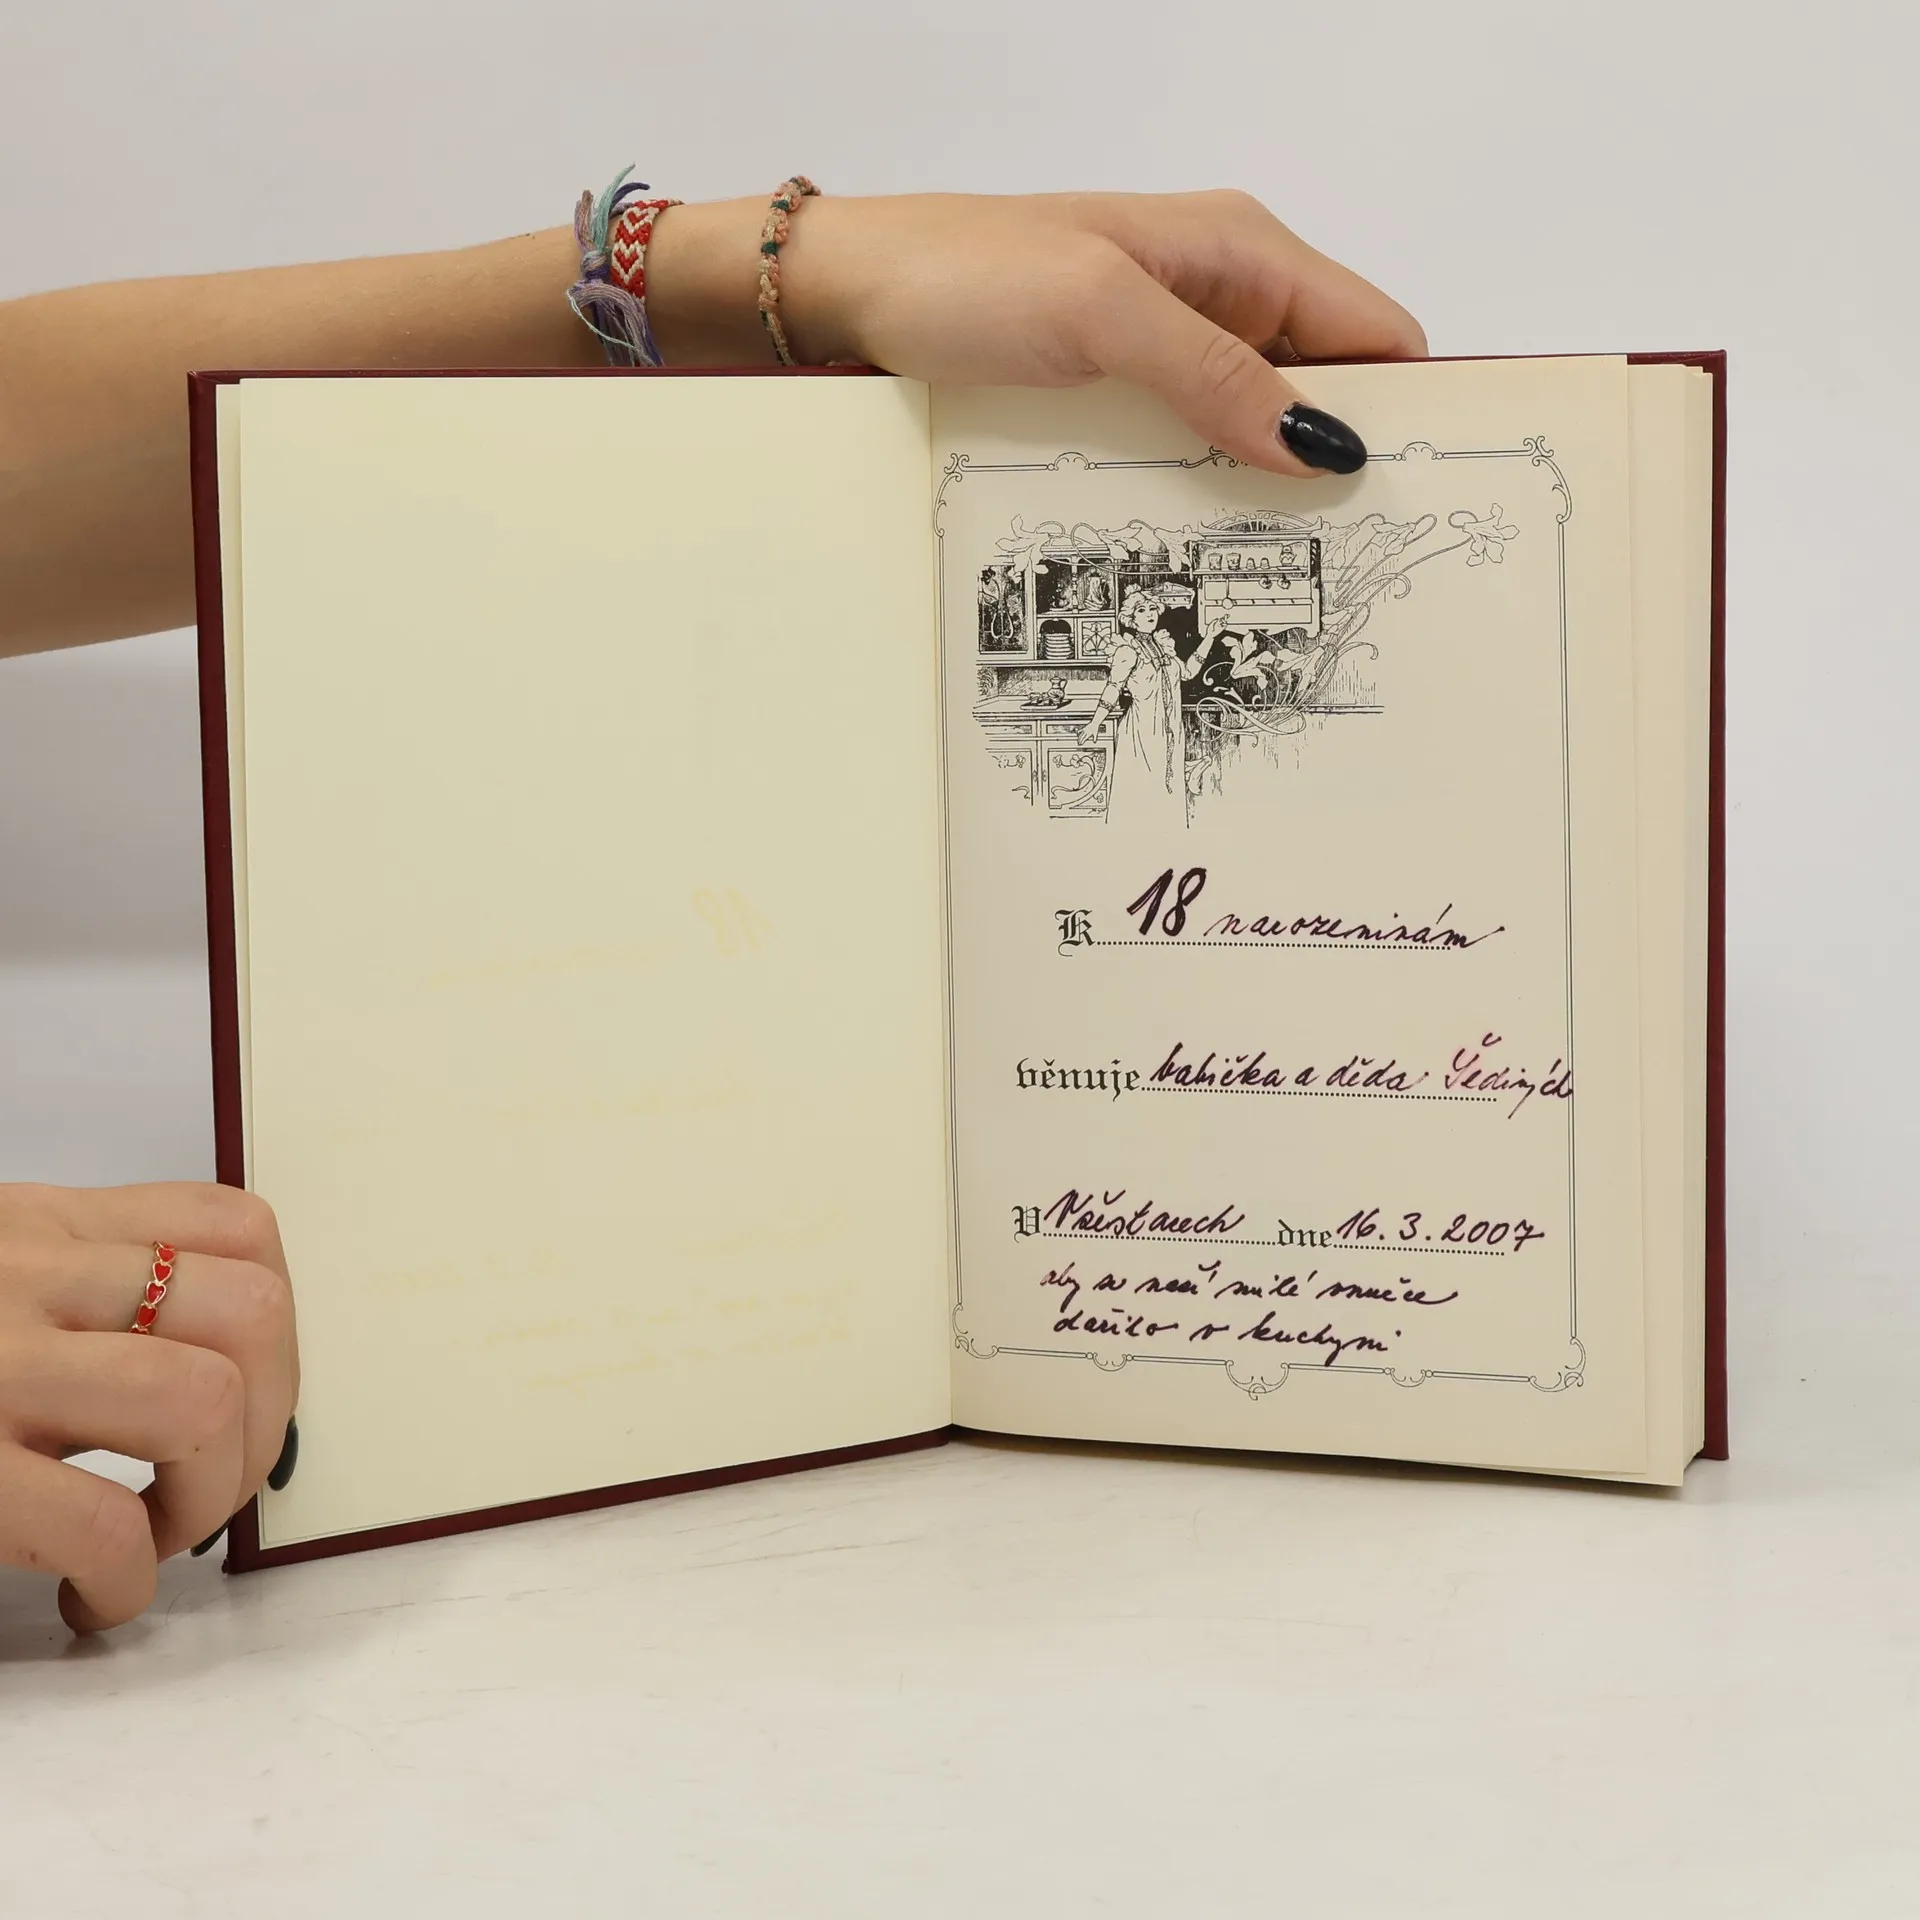 K 18 narozeninám
věnuje babička a děda Šediných
V Vřesťarech dne 16. 3. 2007
aby se naší milé vnučce
dařilo v kuchyni